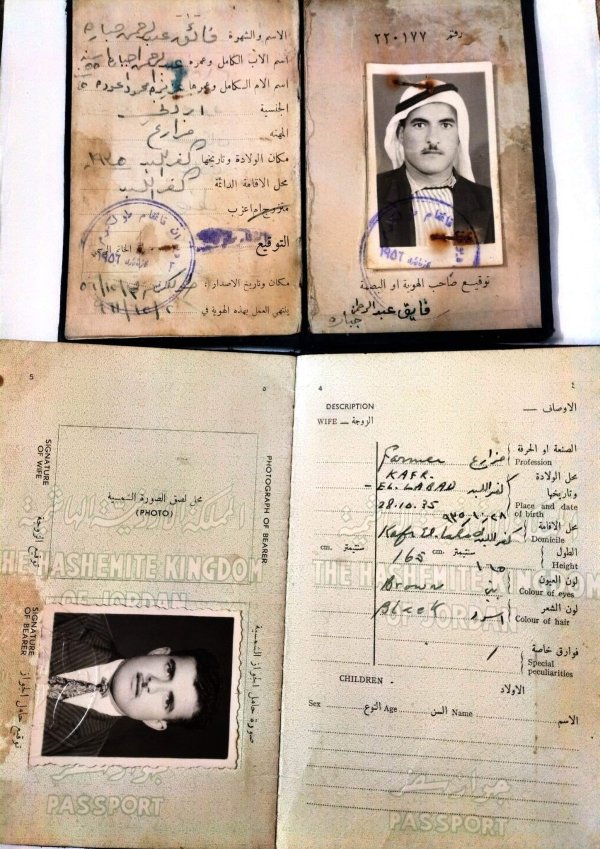 - ١ -
الاسم والشهرة فائق عبد الرحمن جباره
اسم الاب الكامل وعمره عبد الرحمن
اسم الام الكامل وعمرها
الجنسية اردني
المهنة مزارع
مكان الولادة وتاريخها كفر اللبد ١٩٣٥
محل الاقامة الدائمة كفر اللبد
متزوج ام اعزب
التوقيع
الخاتم الرسمي
١٩٥٦
مكان وتاريخ الاصدار :
ينتهي العمل بهذه الهوية في
رقم
٢٢٠١٧٧
١٩٥٦
توقيع صاحب الهوية او البصمة
فايق عبد الرحمن
جباره
5
٥
SIGNATURE OF WIFE
توقيع الزوجة
PHOTOGRAPH OF BEARER
محل لصق الصورة الشمسية
(PHOTO)
المملكة الاردنية الهاشمية
THE HASHEMITE KINGDOM
OF JORDAN
SIGNATURE OF BEARER
توقيع حامل الجواز
صورة حامل الجواز الشمسية
جواز سفر
PASSPORT
4
٤
DESCRIPTION
الاوصاف —
WIFE — الزوجة
Farmer مزارع
الصنعة او الحرفة
Profession
KAFR.
EL. LABAD كفر اللبد
28.10.35
محل الولادة وتاريخها
Place and date of birth
Kafr El. Labad كفر اللبد
محل الاقامة
Domicile
cm. سنتيمتر 165 cm. سنتيمتر ١٦٥
الطول
Height
Browne
لون العيون
Colour of eyes
Black اسود
لون الشعر
Colour of hair
فوارق خاصة
Special peculiarities
THE HASHEMITE KINGDOM
OF JORDAN
CHILDREN
الاولاد
Sex النوع Age السن Name الاسم
جواز سفر
PASSPORT